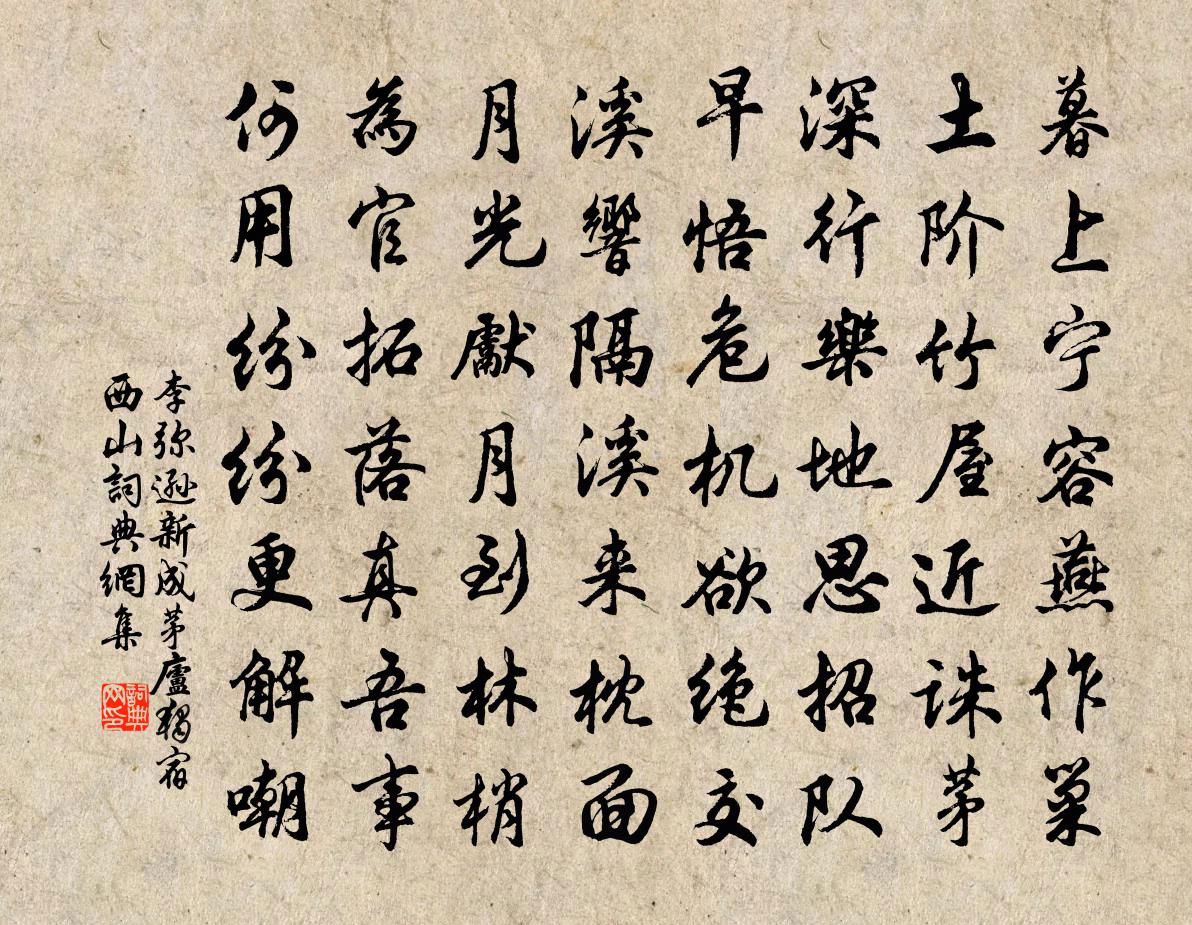 暮上宁容燕作巢
土阶竹屋近诛茅
深行樂地思招队
早悟危机欲绝交
溪響隔溪来枕面
月光獻月到林梢
為官拓落真吾事
何用纷纷更解嘲
李弥遜新成茅廬獨宿
西山詞典網集
詞典
网印